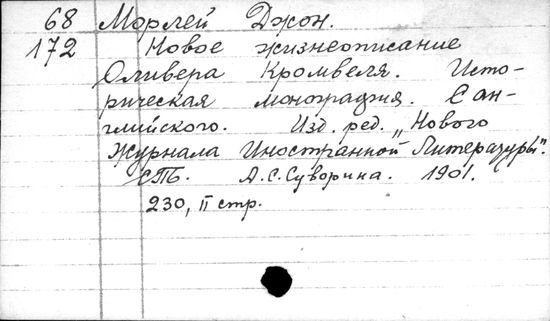 68 Морлей Джон.
172 Новое жизнеописание
Оливера Кромвеля. Исто-
рическая монография. С ан-
глийского. Изд. ред. „Нового
Журнала Иностранной Литературы".
СПБ. А.С.Суворина. 1901.
230, II стр.